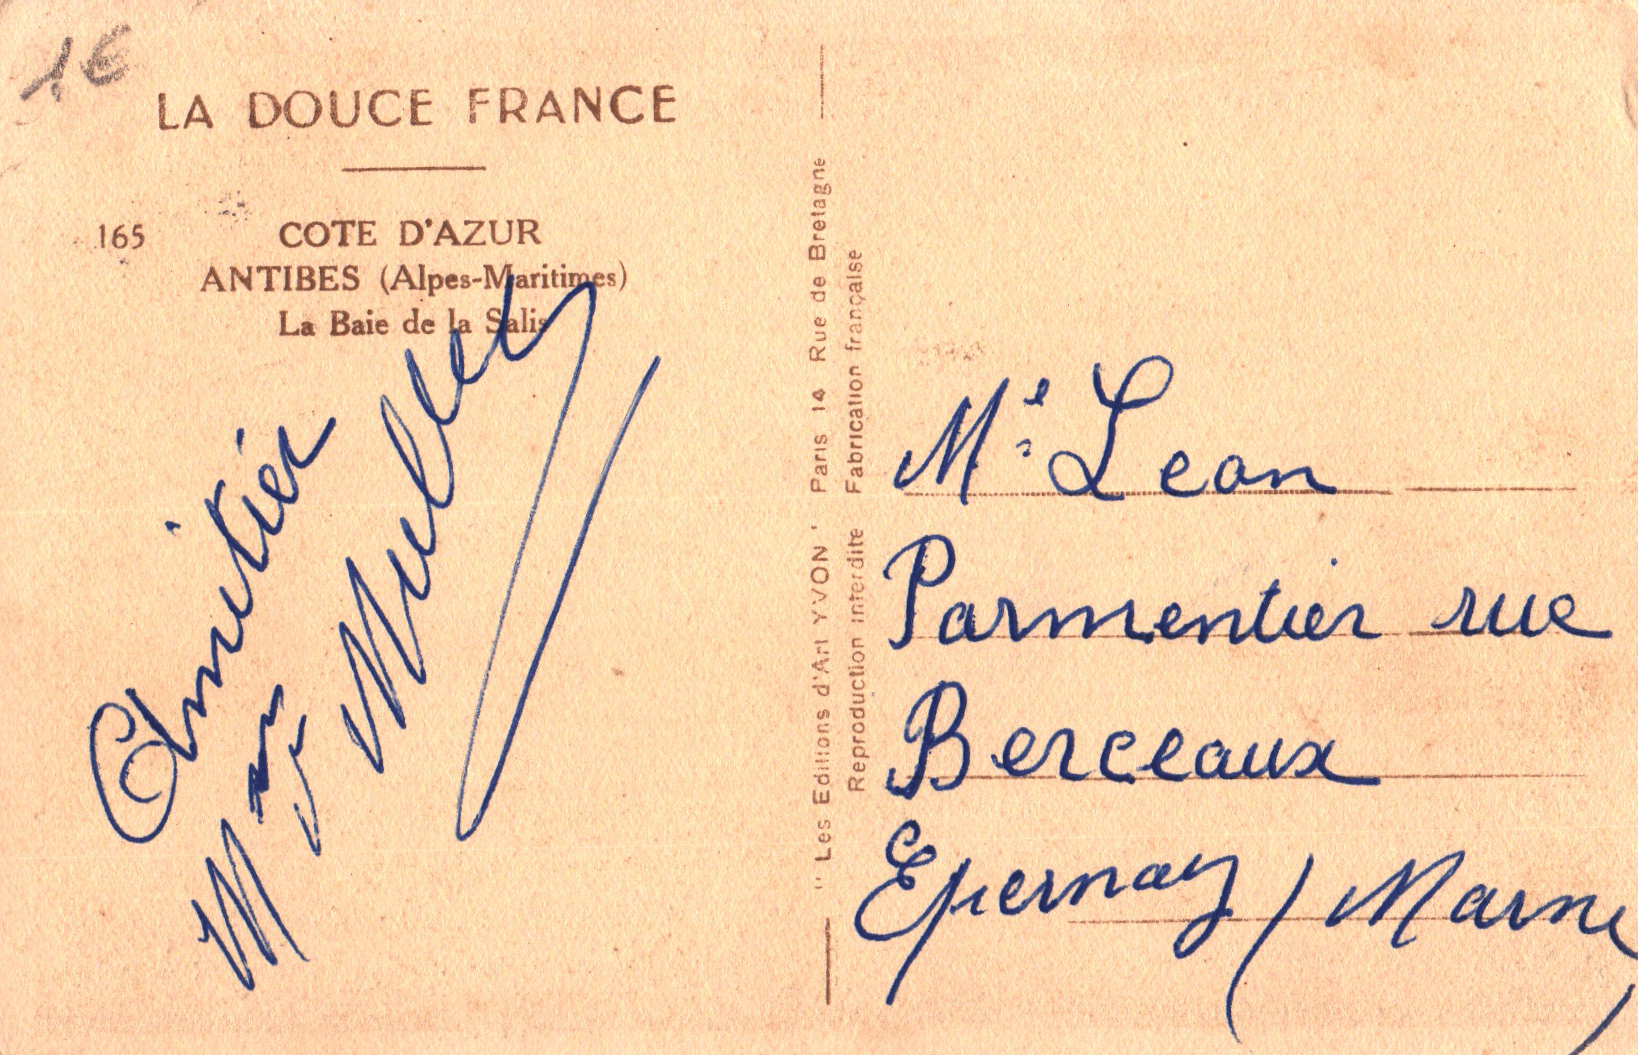 1€
LA DOUCE FRANCE
165
COTE D'AZUR
ANTIBES (Alpes-Maritimes)
La Baie de la Salis
Amitiés
Muller
"Les Editions d'Art YVON" Paris 14 Rue de Bretagne
Reproduction interdite Fabrication française
Mr Leon
Parmentier rue
Berceaux
Epernay (Marne)